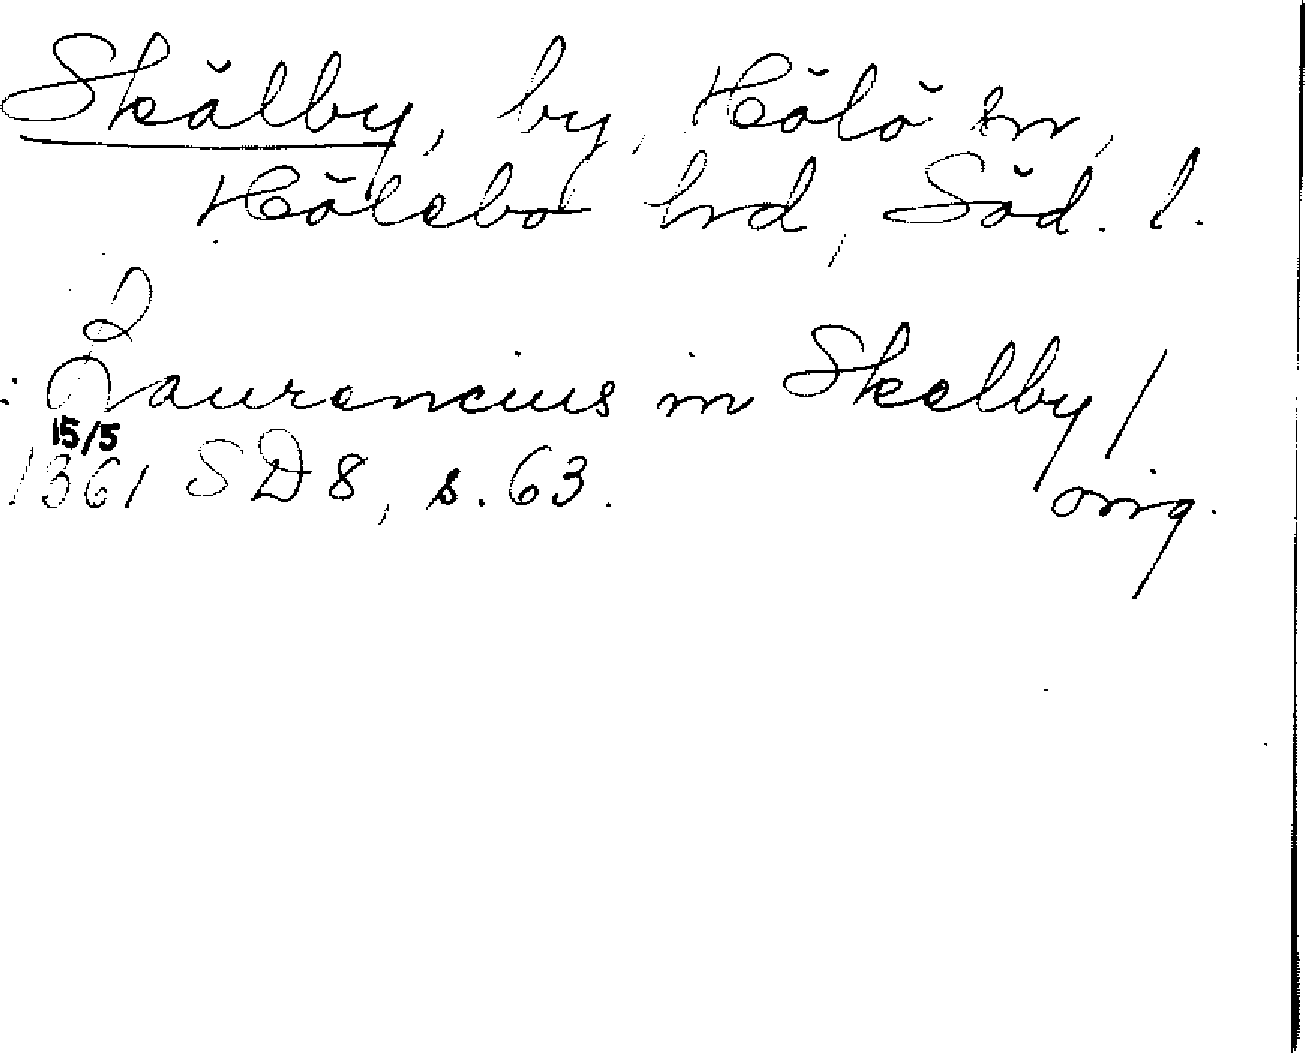 Skälby, by, Hölö sn,
Hölebo hrd, Söd. l.
: Laurencius in Skelby /
15/5
1361 SD 8, s. 63. orig.